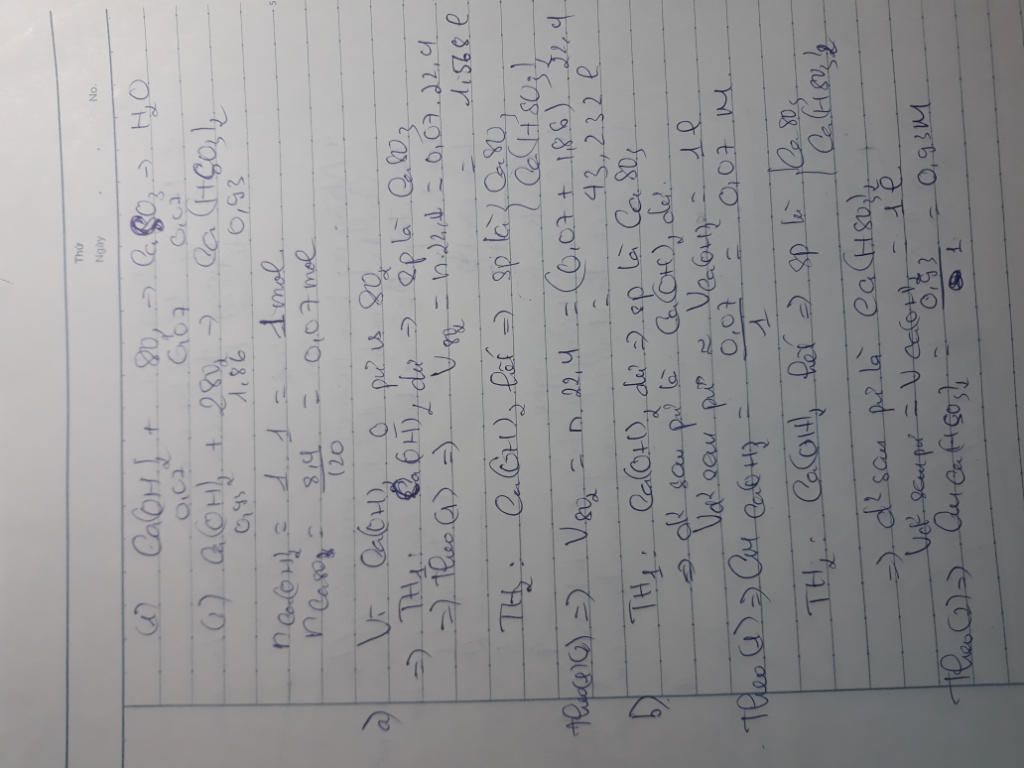 Thứ
Ngày
No.
(1) Ca(OH)2 + SO2 => CaSO3 => H2O
0,07 0,07 0,07
(2) Ca(OH)2 + 2SO2 => Ca(HSO3)2
0,93 1,86 0,93
nCa(OH)2 = 1.1 = 1 mol
nCaSO3 = 8,4/120 = 0,07 mol
a) Vì Ca(OH)2 pứ vs SO2
=> TH1: Ca(OH)2 dư => sp là CaSO3
=> Theo (1) => VSO2 = n.22,4 = 0,07.22,4
= 1.568 l
TH2: Ca(OH)2 hết => sp là { CaSO3
Ca(HSO3)2
Theo (1)(2) => VSO2 = n.22,4 = (0,07 + 1,86).22,4
= 43,232 l
b) TH1: Ca(OH)2 dư => sp là CaSO3
=> d² sau pứ là Ca(OH)2 dư
Vd² sau pứ = VCa(OH)2 = 1 l
Theo (1) => CM Ca(OH)2 = 0,07/1 = 0,07 M
TH2: Ca(OH)2 hết => sp là | CaSO3
Ca(HSO3)2
=> d² sau pứ là Ca(HSO3)2
Vd² sau pứ = VCa(OH)2 = 1 l
Theo (2) => CM Ca(HSO3)2 = 0,93/1 = 0,93M